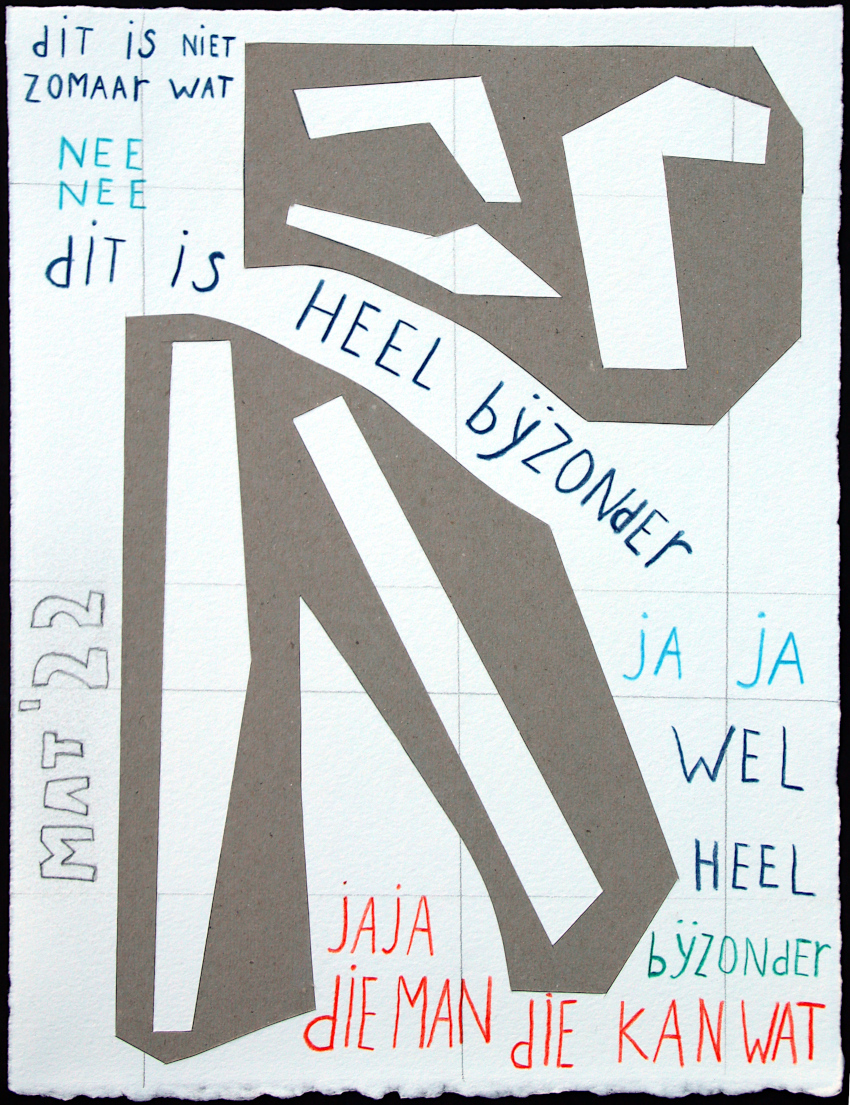 dit is niet
zomaar wat
nee
nee
dit is
heel bÿzonder
ja ja
wel
heel
bÿzonder
jaja
die man die kan wat
MAT '22